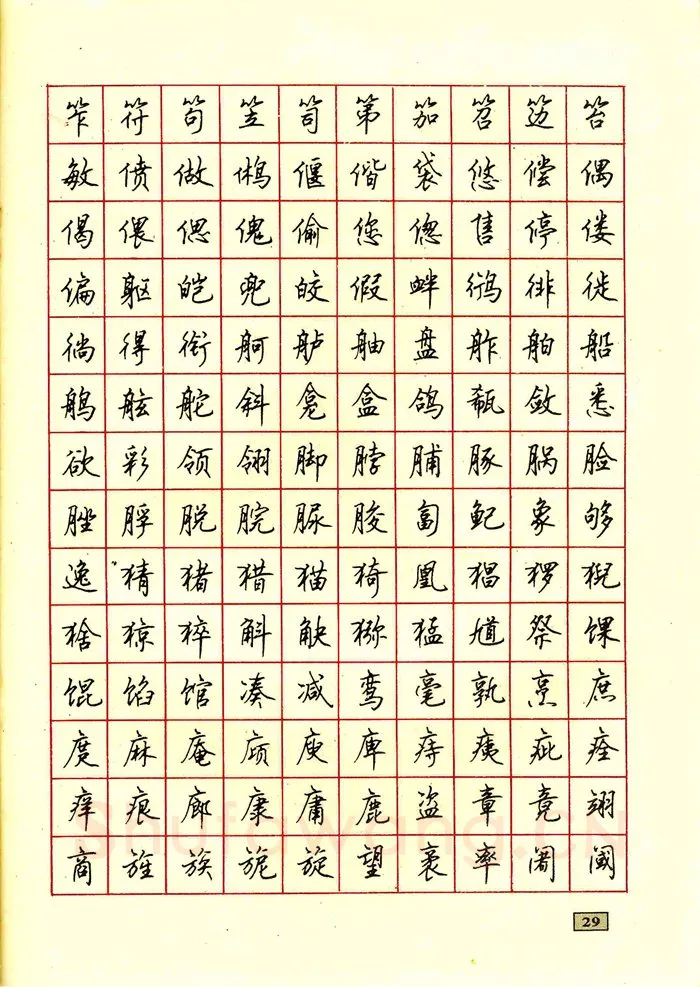 笮符笱笠笥第笳笤笾笞
敏偾做鸺偃偕袋悠偿偶
偈偎偲傀偷您偬售停偻
偏躯皑兜皎假衅鸻徘徙
徜得衔舸舻舳盘舴舶船
鸼舷舵斜龛盒鸽瓻敛悉
欲彩领翎脚脖脯豚脶脸
脞脬脱脘脲朘匐鱾象够
逸猜猪猎猫猗凰猖猡猊
猞猄猝斛觖猕猛馗祭馃
馄馅馆凑减鸾毫孰烹庶
庹麻庵庼庾庳痔痍疵痊
痒痕廊康庸鹿盗章竟翊
商旌族旎旋望袤率阇阈
Shufawang.CN
29